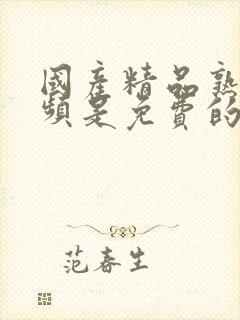 國產精品熟
頻是免費的
范春生